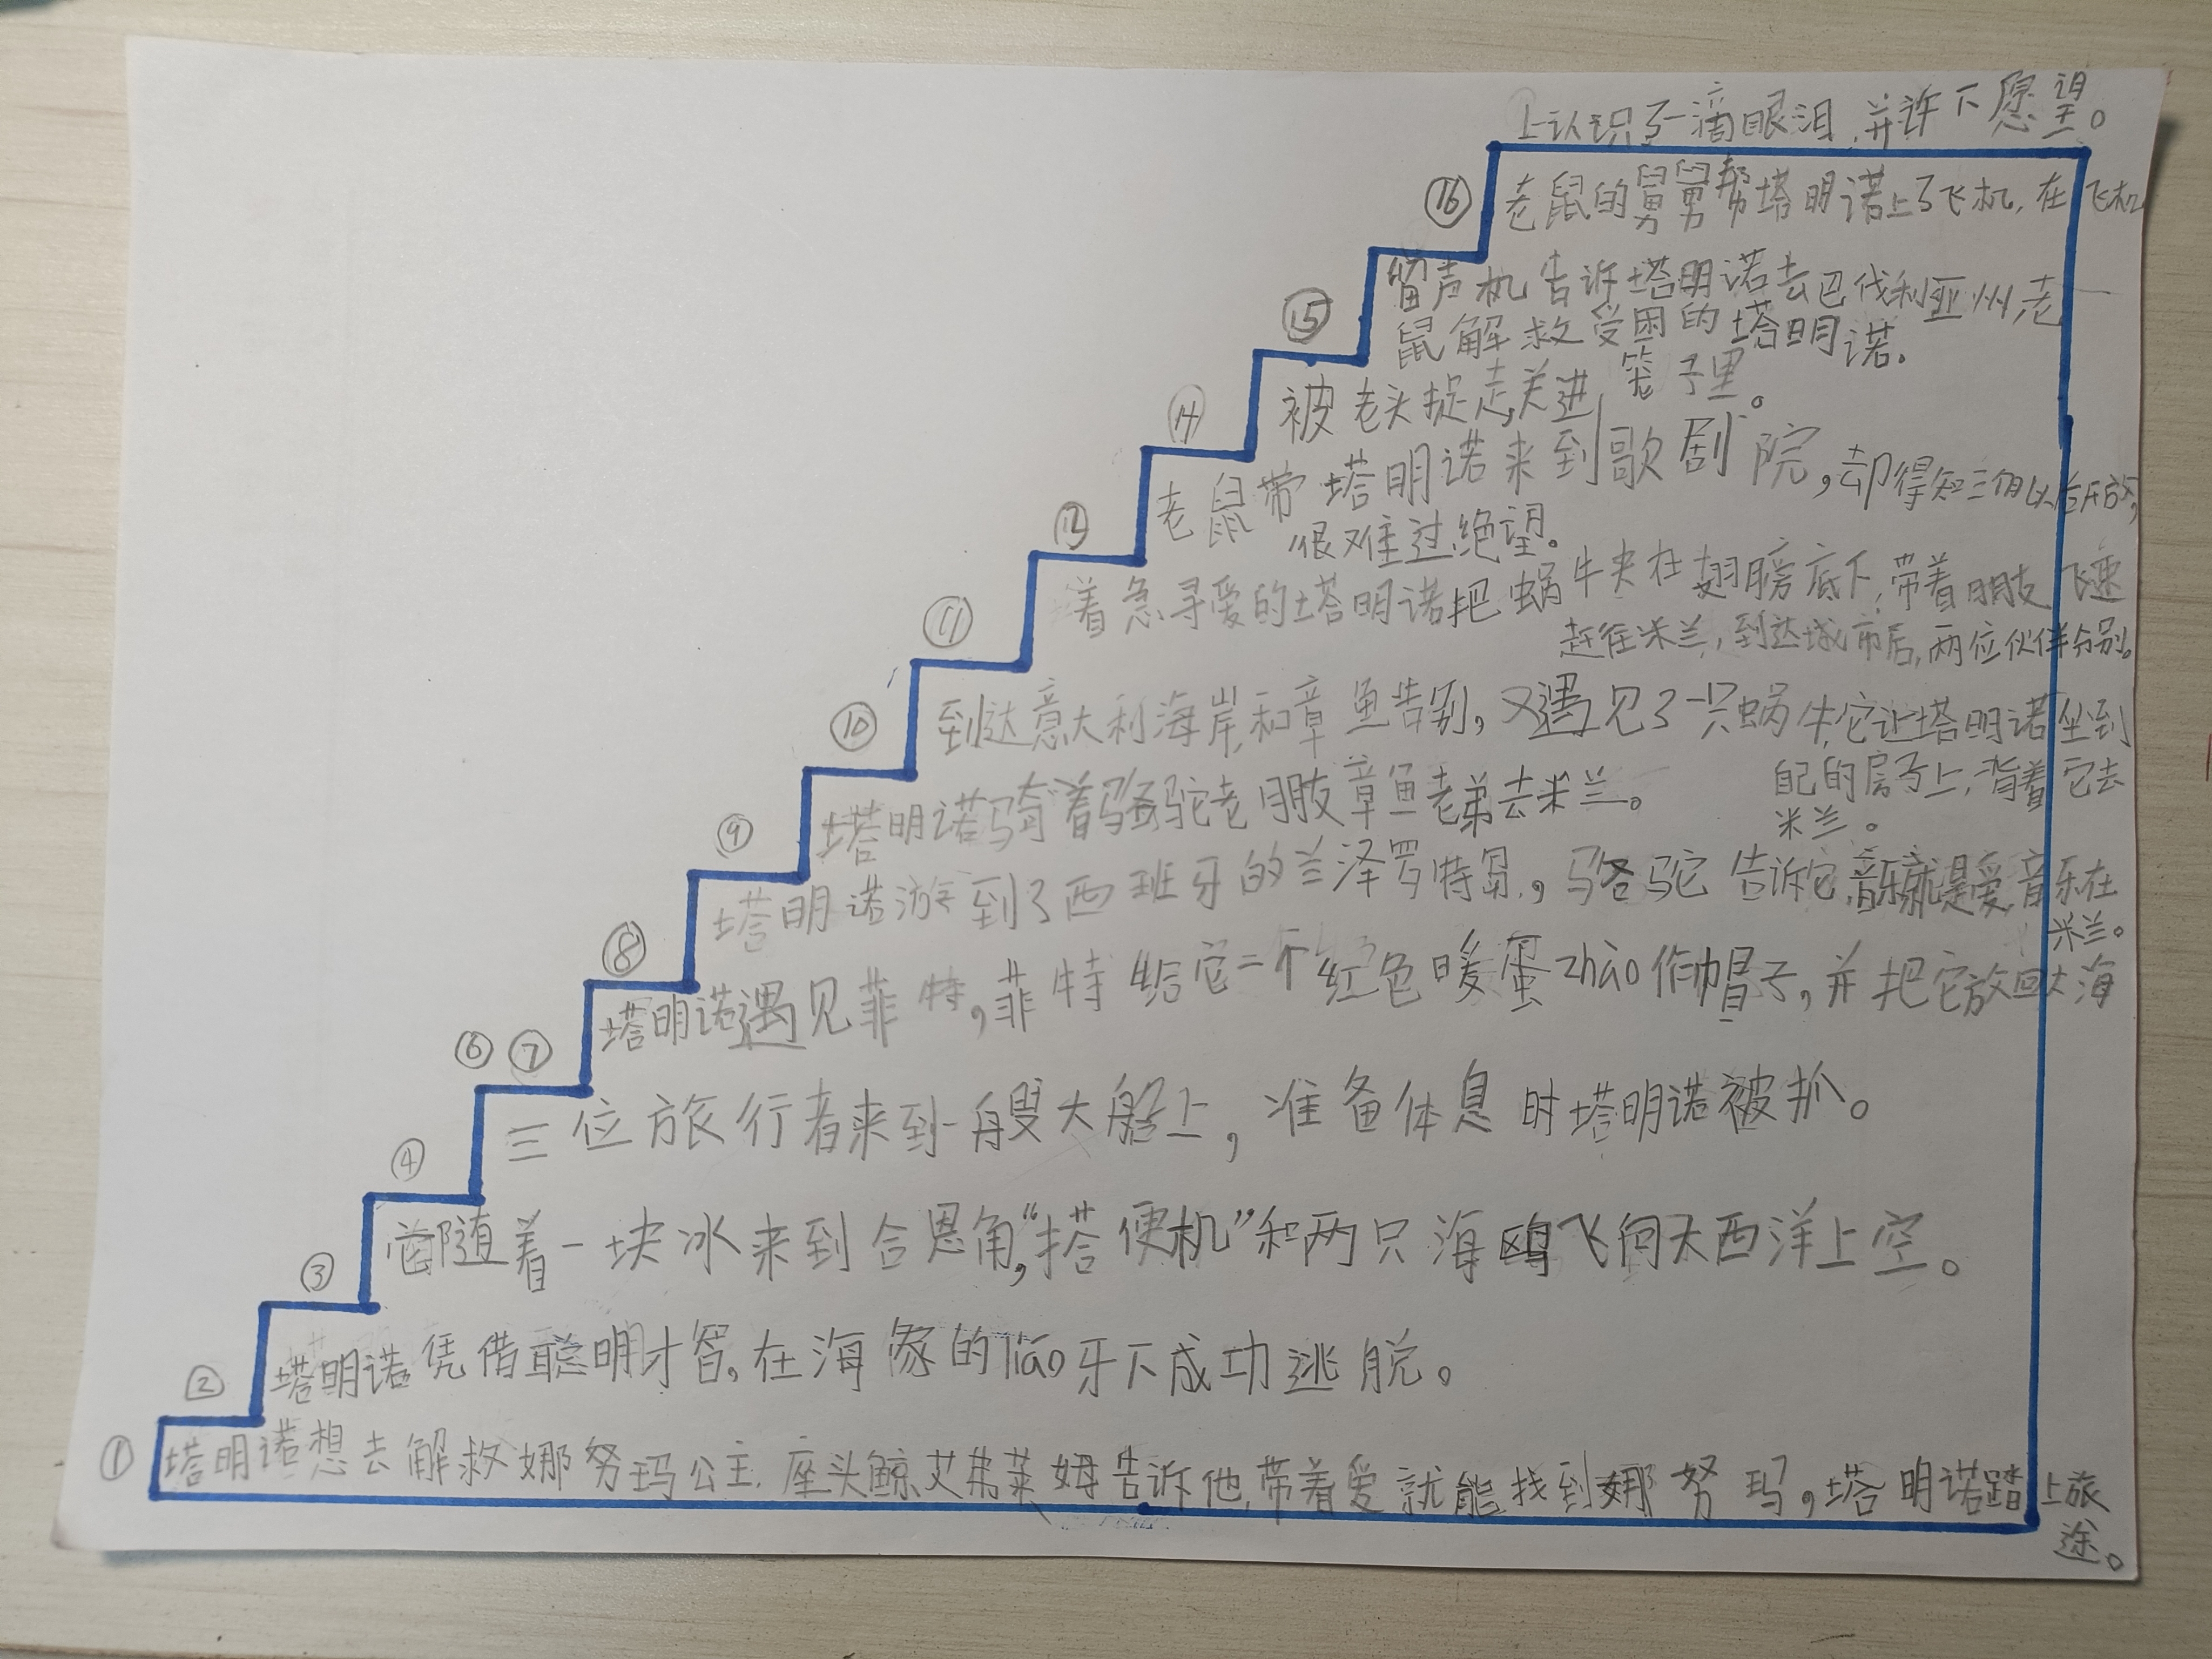 上认识了一滴眼泪,并许下愿望。
⑯ 老鼠的舅舅帮塔明诺上了飞机,在飞机
留声机告诉塔明诺去巴伐利亚州,老
⑮ 鼠解救受困的塔明诺。
⑭ 被老头捉走,关进笼子里。
老鼠带塔明诺来到歌剧院,却得知三个月以后开放,
⑬ 很难过,绝望。
⑪ 着急寻爱的塔明诺把蜗牛夹在翅膀底下,带着朋友飞速
赶往米兰,到达城市后,两位伙伴分别。
⑩ 到达意大利海岸,和章鱼告别,又遇见了一只蜗牛,它让塔明诺坐到
自己的房子上,背着它去
米兰。
⑨ 塔明诺骑着骆驼老朋友章鱼老弟去米兰。
⑧ 塔明诺游到了西班牙的兰泽罗特岛,骆驼告诉它,音乐就是爱,音乐在
米兰。
⑥⑦ 塔明诺遇见菲特,菲特给它一个红色暖蛋zhào作帽子,并把它放回大海
④ 三位旅行者来到一艘大船上,准备休息时塔明诺被抓。
③ 随着一块冰来到合恩角,“搭便机”和两只海鸥飞向大西洋上空。
② 塔明诺凭借聪明才智,在海象的liáo牙下成功逃脱。
① 塔明诺想去解救娜努玛公主,座头鲸艾弗莱姆告诉他,带着爱就能找到娜努玛,塔明诺踏上旅
途。